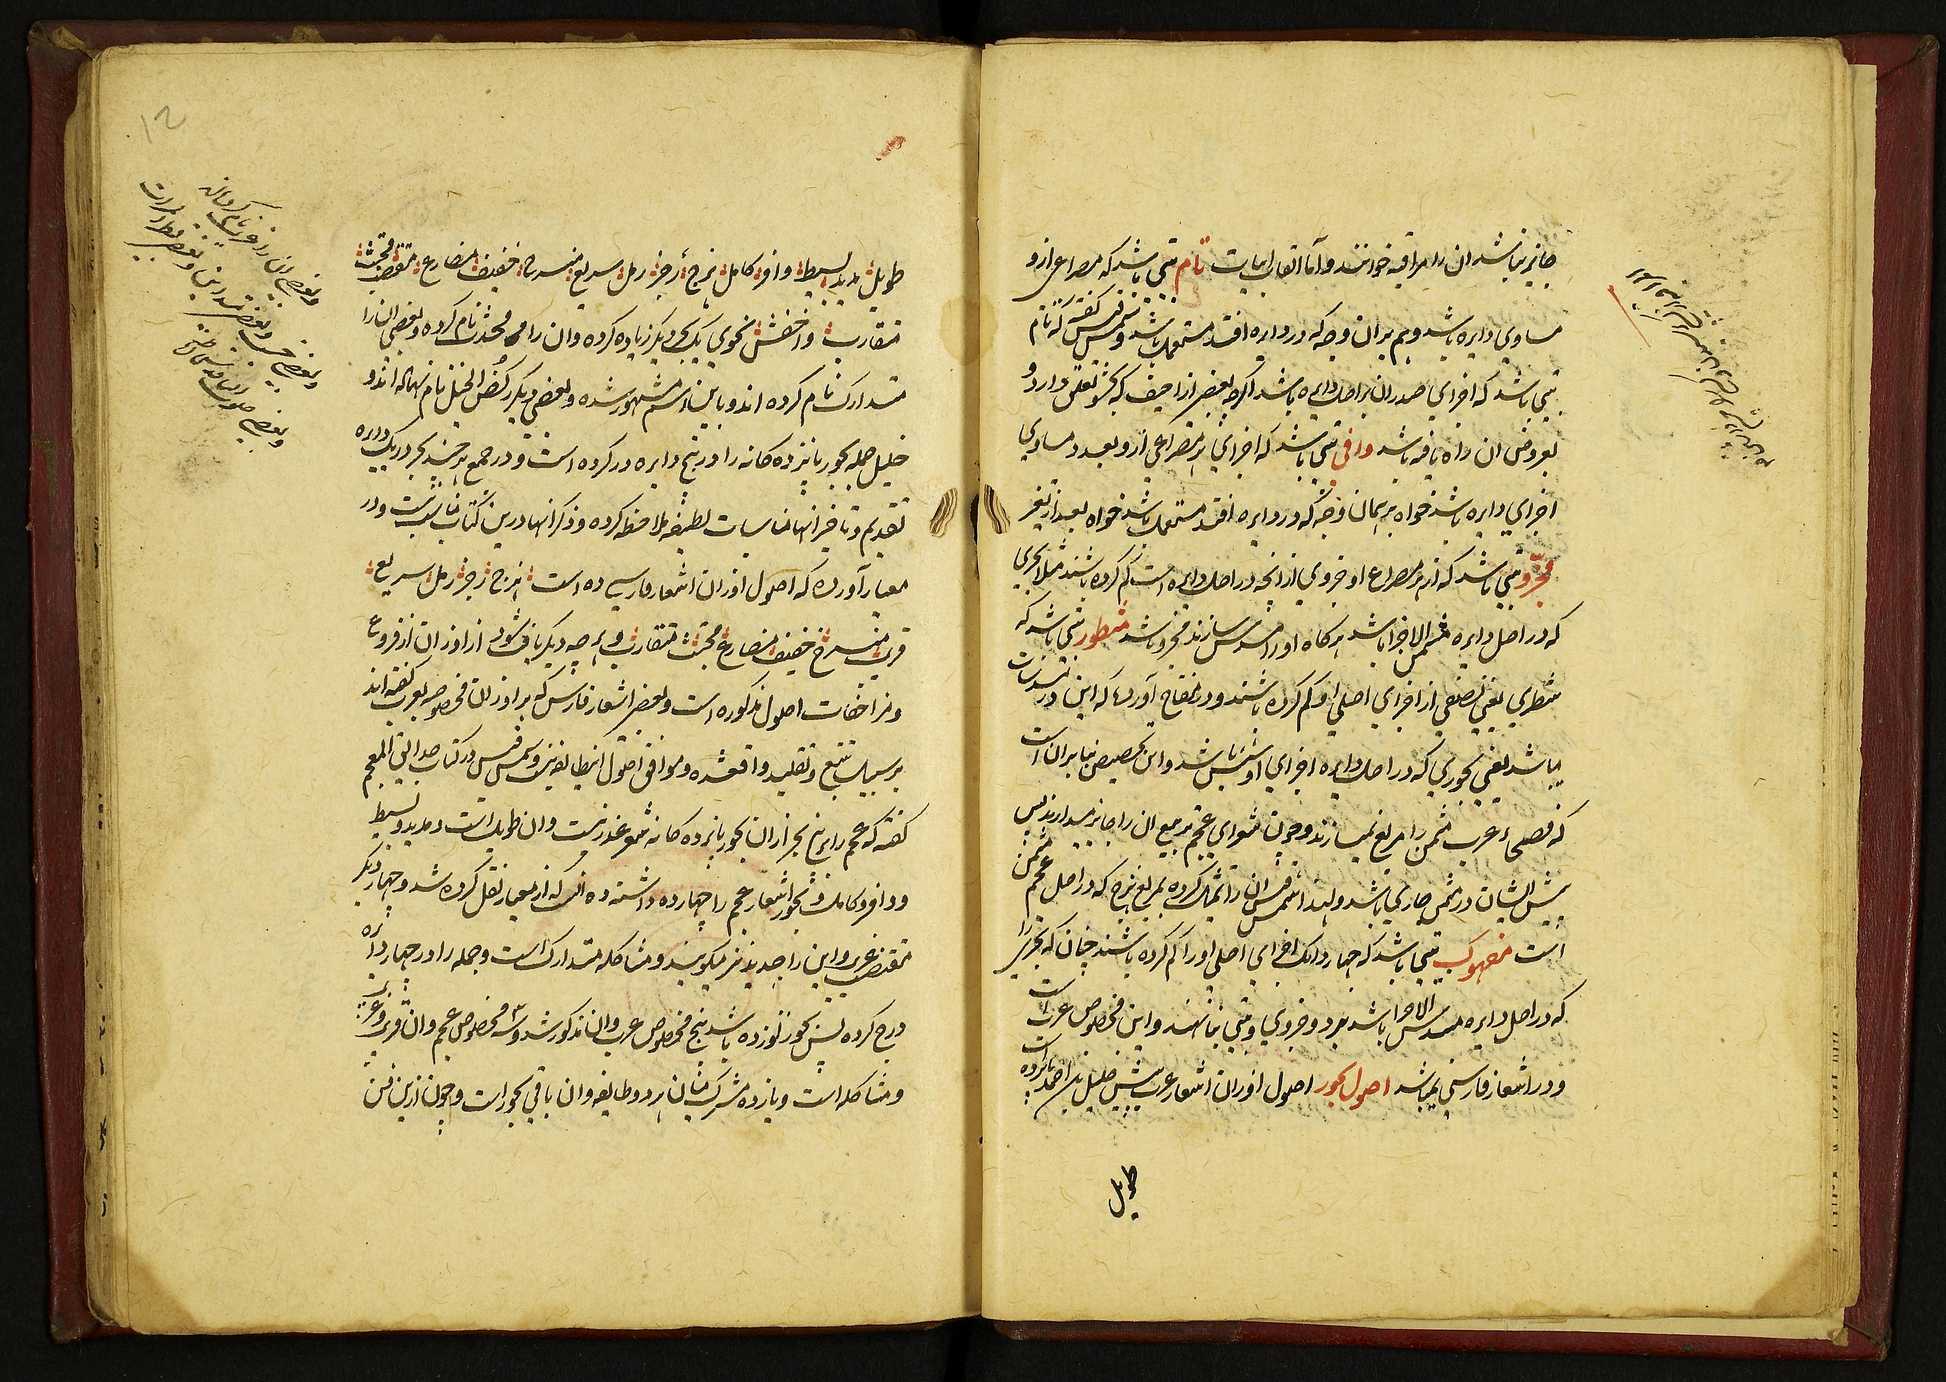 جایز نباشد ان را مراقبه خوانند و اما القاب ابیات تام بیتی باشد که مصراعی از و
مساوی دایره باشد و هم بران وجه که در دایره افتد مستعمل باشد و شمس قیس گفته که تام
بیتی باشد که اجزای صدران بر اصل دایره باشد اگرچه بعضی از ازاحیف که بحشو تعلق دارد و
بعروض ان راه یافته باشد وافی بیتی باشد که اجزای هر مصراعی از و بعدد مساوی
اجزای دایره باشد خواه بر همان وجه که در دایره افتد مستعمل باشد خواه بعد از تغیر
مجزو بیتی باشد که از هر مصراع او جزوی از انچه در اصل دایره است کم کرده باشند مثلا بحری
که در اصل دایره مثمن الاجزا باشد هرگاه او را مسدس سازند مجزو باشد مشطور بیتی باشد که
شطری یعنی نصفی از اجزای اصلی او کم کرده باشند و در مفتاح آورده که این در مسدسات
میباشد یعنی بحوری که در اصل دایره اجزای او شش باشد و این تخصیص بنا بران است
که فصحاء عرب مثمن را مربع نمیسازند و چون شعرای عجم تربیع ان را جایز میدارند پس
پیش ایشان در مثمن جاری باشد و لهذا شمس قیس ان را تمثیل کرده بمربع هزج که در اصل عجم مثمن
است منهوک بیتی باشد که چهار دانگ اجزای اصلی او را کم کرده باشند چنان که بحری را
که در اصل دایره مسدس الاجزا باشد بر دو جزوی بیتی بنا نهند و این مخصوص عرب است
و در اشعار فارسی نمیباشد اصول بحور اصول اوزان اشعار عرب پیش خلیل بن احمد پانزده است
طویل
طویل مدید بسیط وافر کامل هزج رجز رمل سریع منسرح خفیف مضارع مقتضب مجتث
متقارب و اخفش نحوی یک بحر دیگر زیاده کرده وان را محدث نام کرده و بعضی انرا
متدارک نام کرده اند و باین اسم مشهور شده و بعضی دیگر رکض الخیل نام نهاده اند و
خلیل جمله بحور پانزده کانه را در پنج دایره درکرده است و در جمع هر چند بحر در یک دایره
تقدیم و تاخیر انها مناسبات لطیفه ملاحظه کرده و ذکر انها درین کتاب مناسب نیست و در
معیار آورده که اصول اوزان اشعار فارسی ده است هزج رجز رمل سریع
قریب منسرح خفیف مضارع مجتث متقارب و هر چه دیگر یافته شود از اوزان از فروع
و مزاحفات اصول مذکوره است و بعضی اشعار فارسی که بر اوزان مخصوصه بعرب گفته اند
بر سبیل تتبع و تقلید واقع شده و موافق اصول این طایفه نیست و شمس قیس در کتاب حدایق المعجم
گفته که عجم را بر پنج بحر از ان بحور پانزده کانه شعر عذب نیست وان طویل است و مدید و بسیط
و وافر و کامل و بحور اشعار عجم را چهارده داشته ده انست که از معیار نقل کرده شد و چهار دیگر
مقتضب غریب و این را جدید نیز میگویند و مشاکله متدارک است و جمله را در چهار دایره
درج کرده پس بحور نوزده باشد پنج مخصوص عرب وان مذکور شد و سه مخصوص عجم وان قریب و غریب
و مشاکله است و یازده مشترک میان هر دو طایفه وان باقی بحور است و چون ازین فن
۱۲